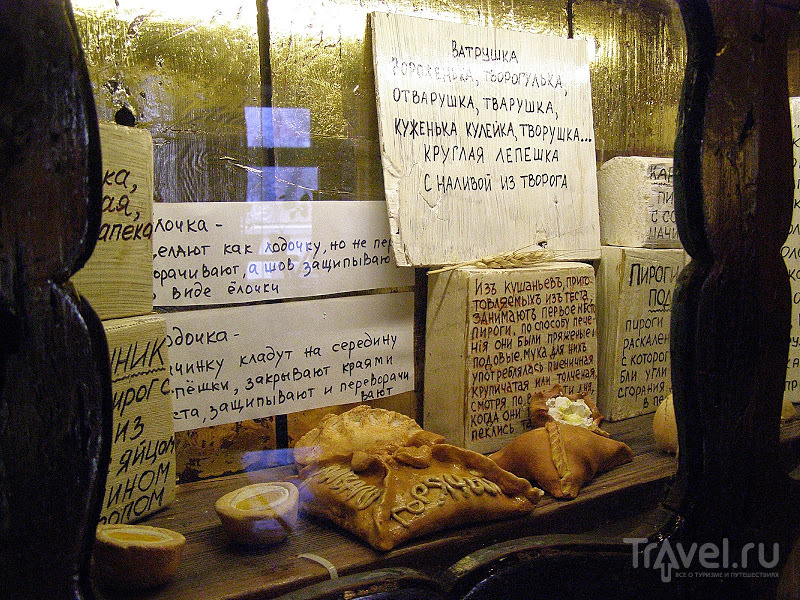 ВАТРУШКА
ТВОРОГУЛЬКА,
ОТВАРУШКА, ТВАРУШКА,
КУЖЕНЬКА КУЛЕЙКА, ТВОРУШКА...
КРУГЛАЯ ЛЕПЕШКА
С НАЛИВОЙ ИЗ ТВОРОГА
ка,
ая,
апека
лочка -
елдют как лодочку, но не пер
ворачивают, а шов защипываю
в виде ёлочки
одочка -
чинку кладут на середину
пёшки, закрывают краями
ста, защипывают и переворачи
вают
НИК
пирогс
ИЗ
яйцом
ином
ропом
Изъ кушаньевъ, приго-
товляемыхъ изъ теста,
занимаютъ первое место
пироги. по способу пече-
нiя они были пряженые и
подовые. мука для нихъ
употреблялась пшеничная
крупичатая или толченая,
смотря по
когда они
пеклись
КАР
ПИ
С СО
НАЧИ
Пироги
под
пироги
раскален
с которог
бли угли
сгорания
в пе
ГОРЯЧО
Travel.ru
ВСЕ О ТУРИЗМЕ И ПУТЕШЕСТВИЯХ